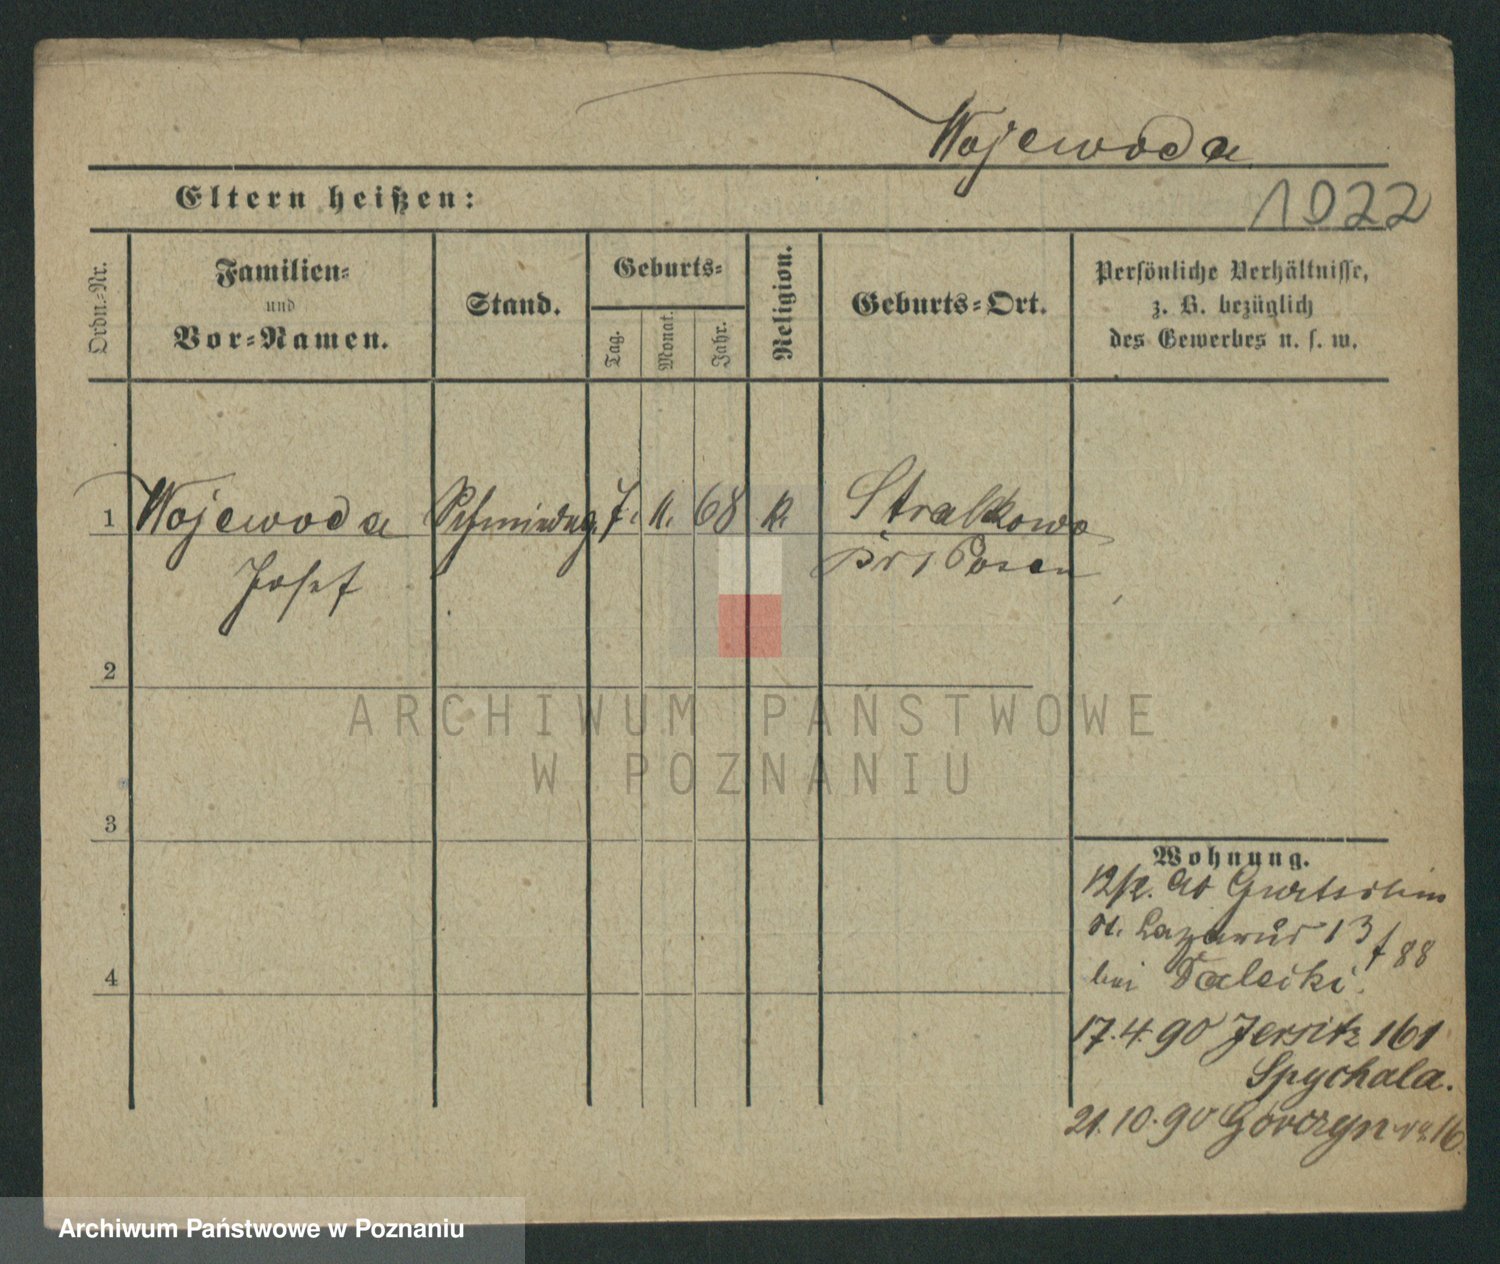 Wojewoda
Eltern heißen:
1022
Ordn.-Nr.
Familien-
und
Vor-Namen.
Stand.
Geburts-
Tag.
Monat.
Jahr.
Religion.
Geburts-Ort.
Persönliche Verhältnisse,
z. B. bezüglich
des Gewerbes u. s. w.
1 Wojewoda Schmiedeg. 7. 11. 68 k. Stralkowo
Josef Kr. Posen
2
3
4
Wohnung.
St. Lazarus 13
88
bei Daleiki.
17.4.90 Jersitz 161
Spychala.
21.10.90 Gorczyn 16.
ARCHIWUM PAŃSTWOWE
W POZNANIU
Archiwum Państwowe w Poznaniu